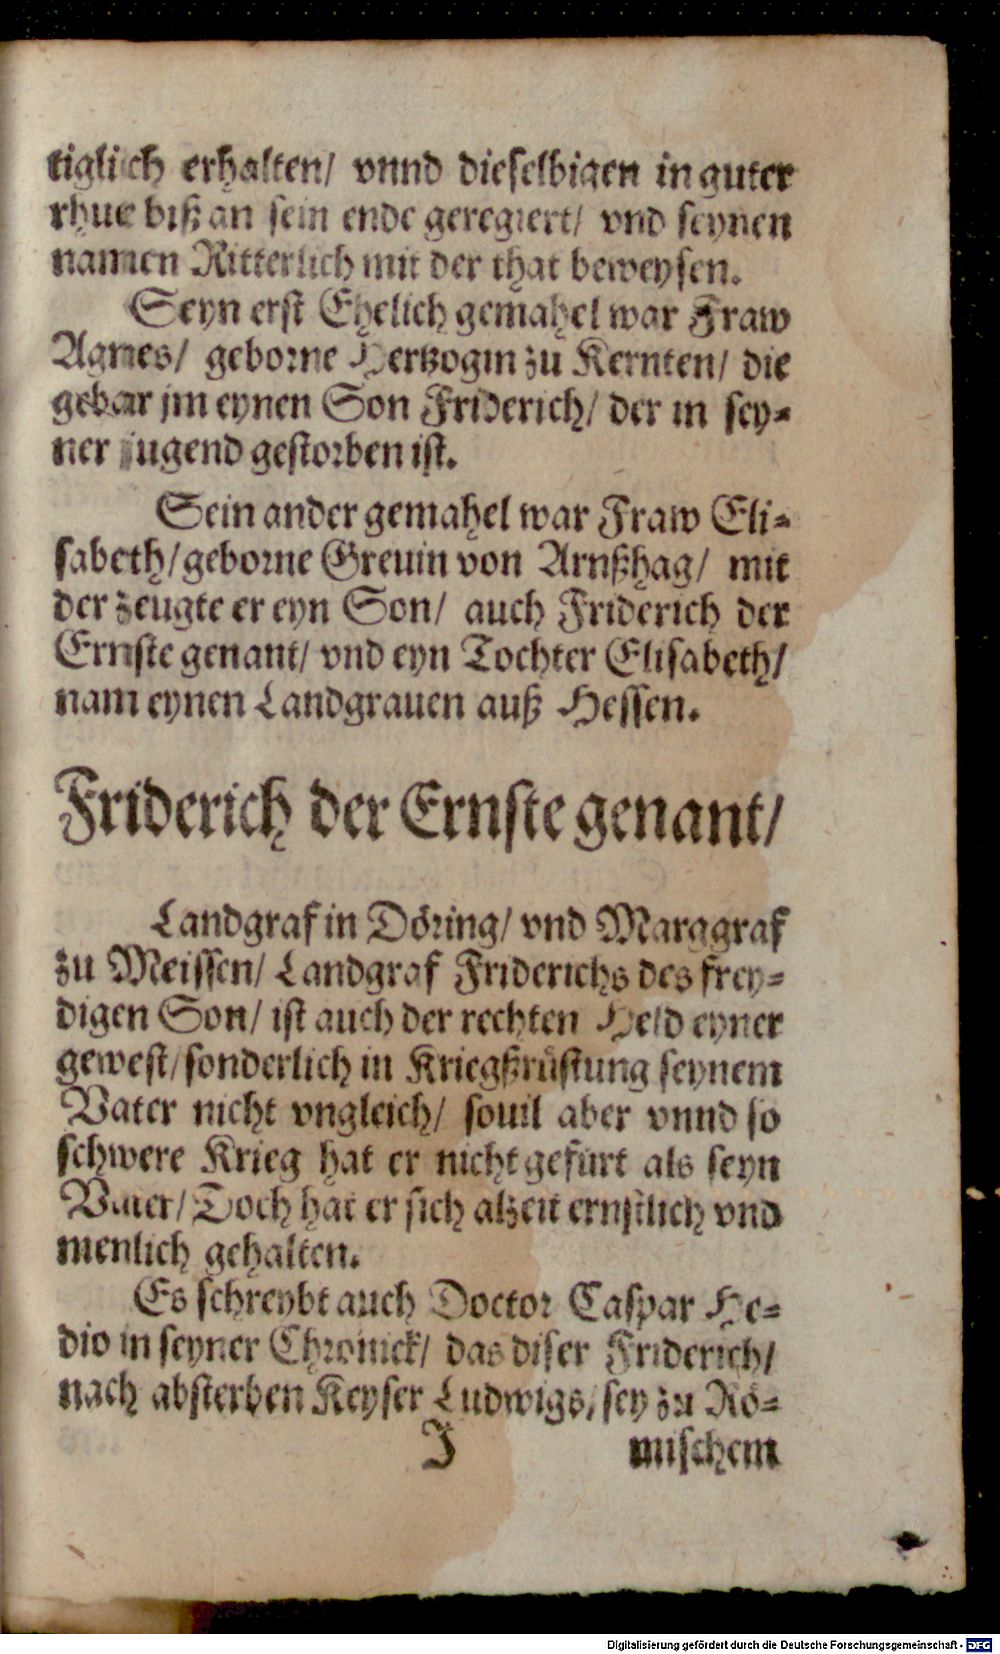 tiglich erhalten/ vnnd dieselbigen in guter
rhue biß an sein ende geregiert/ vnd seynen
namen Ritterlich mit der that beweysen.
Seyn erst Ehelich gemahel war Fraw
Agnes/ geborne Hertzogin zu Kernten/ die
gebar jm eynen Son Friderich/ der in sey-
ner jugend gestorben ist.
Sein ander gemahel war Fraw Eli-
sabeth/ geborne Greuin von Arnßhag/ mit
der zeugte er eyn Son/ auch Friderich der
Ernste genant/ vnd eyn Tochter Elisabeth/
nam eynen Landgrauen auß Hessen.
Friderich der Ernste genant/
Landgraf in Döring/ vnd Marggraf
zu Meissen/ Landgraf Friderichs des frey-
digen Son/ ist auch der rechten Held eyner
gewest/ sonderlich in Kriegßrüstung seynem
Vater nicht vngleich/ souil aber vnnd so
schwere Krieg hat er nicht gefürt als seyn
Vater/ Doch hat er sich alzeit ernstlich vnd
menlich gehalten.
Es schreybt auch Doctor Caspar He-
dio in seyner Chronick/ das diser Friderich/
nach absterben Keyser Ludwigs, sey zu Rö-
J mischem
Digitalisierung gefördert durch die Deutsche Forschungsgemeinschaft - DFG